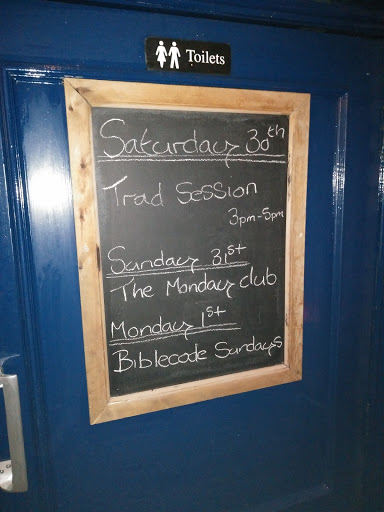 Toilets
Saturday 30th
Trad Session
3pm-5pm
Sunday 31st
The Monday club
Monday 1st
Biblecode Sundays